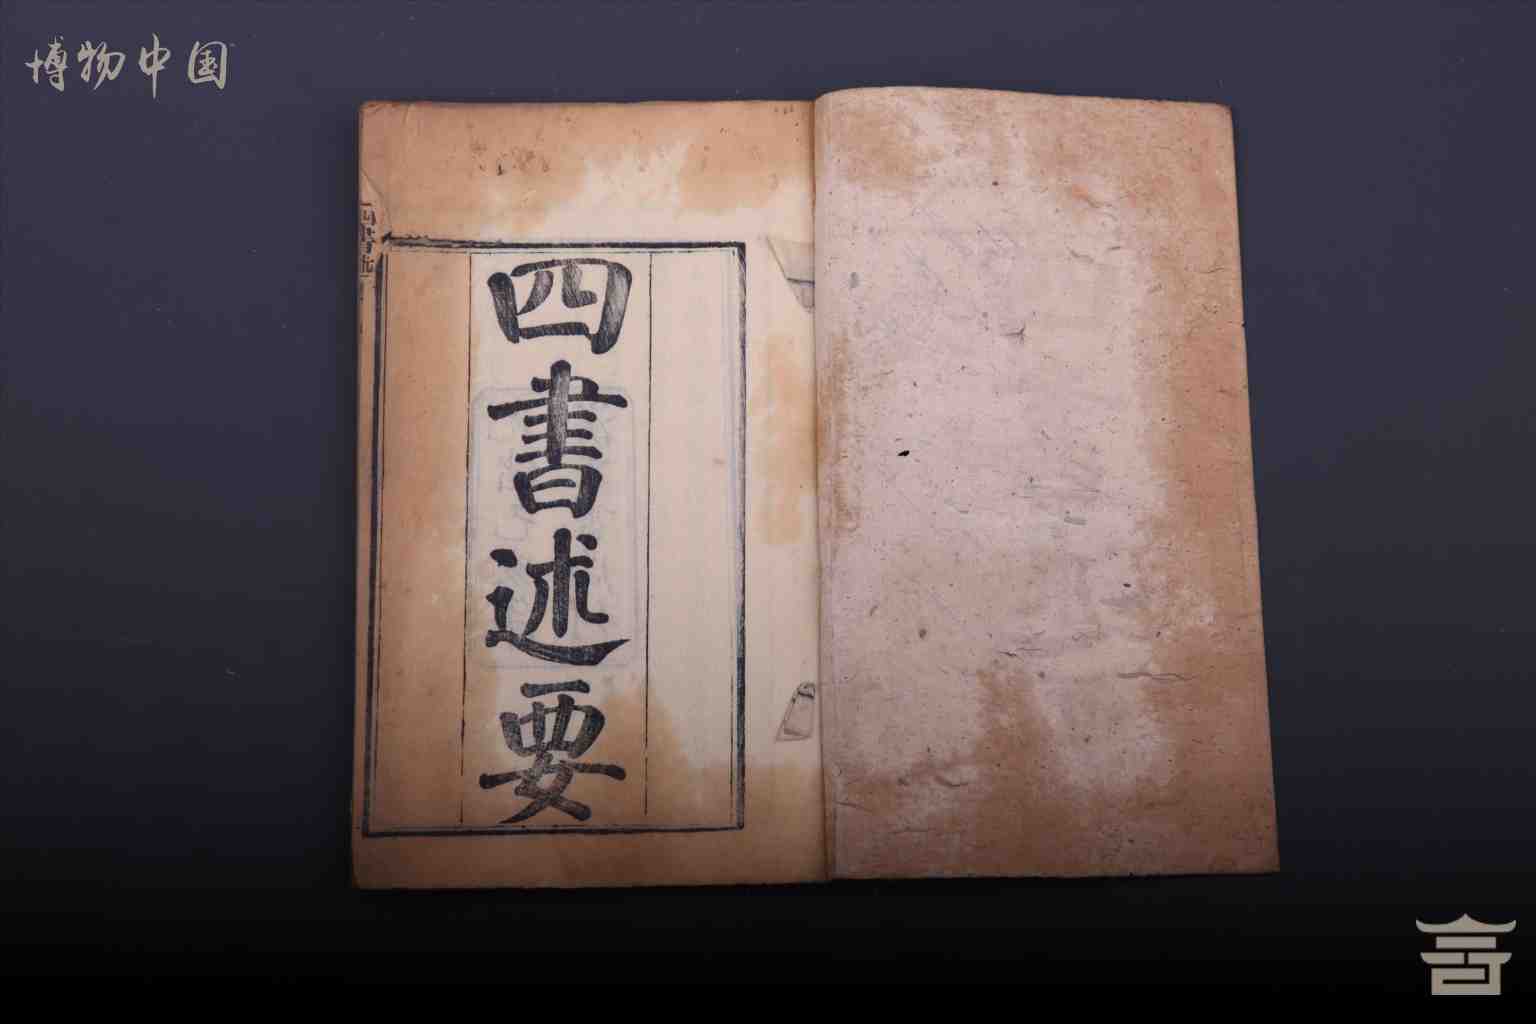 博物中国
四書述要